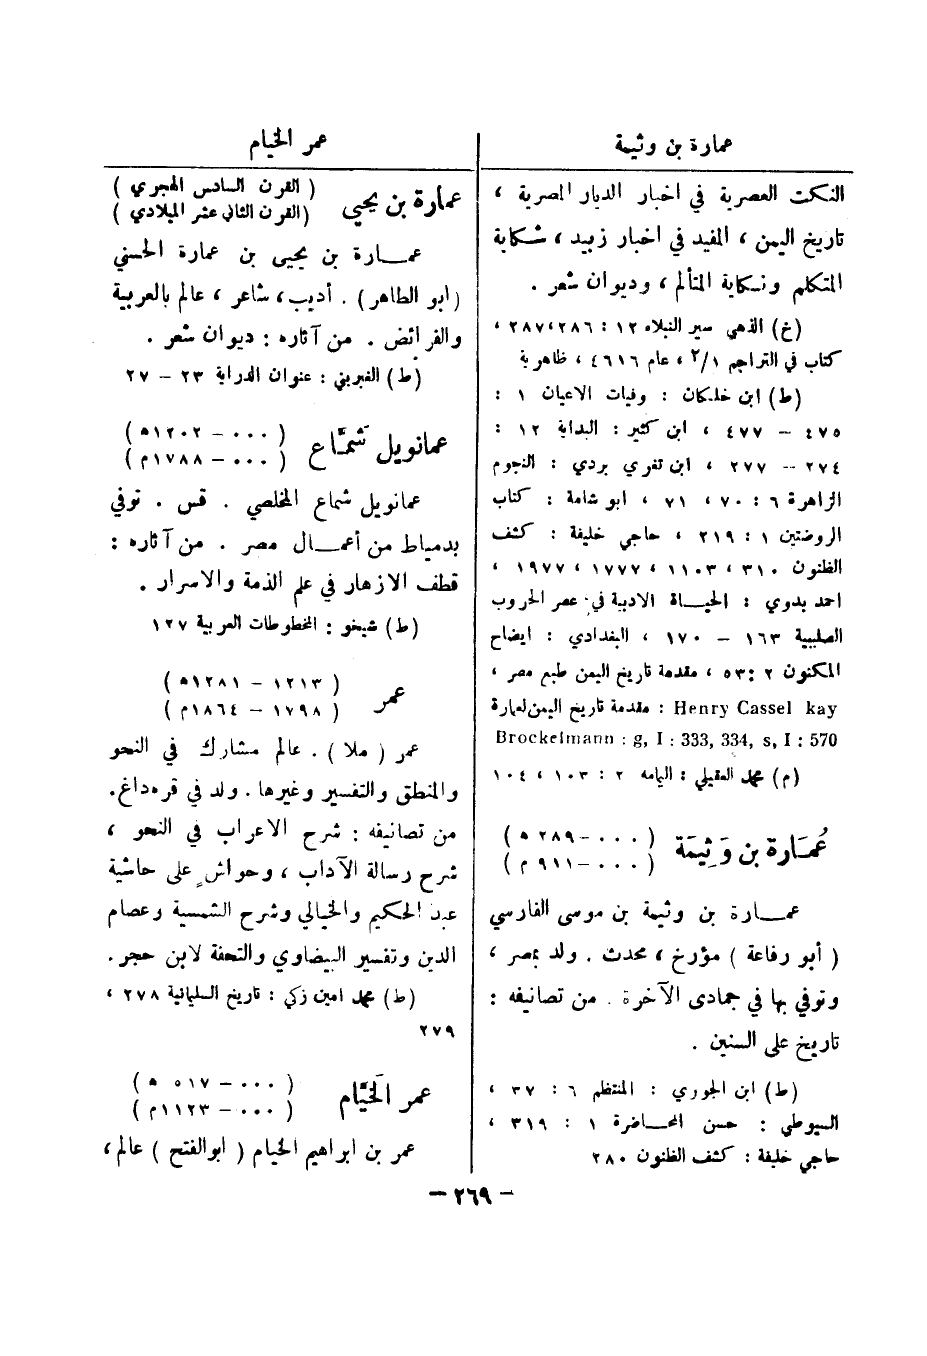 عمارة بن وثيمة
النكت العصرية في اخبار الديار المصرية ،
تاريخ اليمن ، المفيد في اخبار زبيد ، شكاية
المتكلم ونكاية المتألم ، وديوان شعر .
(خ) الذهبي سير النبلاء ١٢ : ٢٨٦،٢٨٧ ،
كتاب في التراجم ٢/١ ، عام ٤٦١٦ ، ظاهرية
(ط) ابن خلكان : وفيات الاعيان ١ :
٤٧٥ – ٤٧٧ ، ابن كثير : البداية ١٢ :
٢٧٤ -- ٢٧٧ ، ابن تغري بردي : النجوم
الزاهرة ٦ : ٧٠ ، ٧١ ، ابو شامة : كتاب
الروضتين ١ : ٢١٩ ، حاجي خليفة : كشف
الظنون ٣١٠ ، ١١٠٣ ، ١٧٧٧ ، ١٩٧٧ ،
احمد بدوي : الحياة الادبية في عصر الحروب
الصليبية ١٦٣ – ١٧٠ ، البغدادي : ايضاح
المكنون ٢ : ٥٣ ، مقدمة تاريخ اليمن طبع مصر ،
Henry Cassel kay : مقدمة تاريخ اليمن لعمارة
Brockelmann : g, I : 333, 334, s, I : 570
(م) محمد العقيلي : اليمامه ٢ : ١٠٣ ، ١٠٤
عُمَارة بن وَثِيمَة ( ٠٠٠ – ٢٨٩ ه )
( ٠٠٠ – ٩١١ م )
عمـــارة بن وثيمة بن موسى الفارسي
( أبو رفاعة ) مؤرخ ، محدث . ولد بمصر ،
وتوفي بها في جمادى الآخرة . من تصانيفه :
تاريخ على السنين .
(ط) ابن الجوزي : المنتظم ٦ : ٣٧ ،
السيوطي : حسن المحـــاضرة ١ : ٣١٩ ،
حاجي خليفة : كشف الظنون ٢٨٠
عمر الخيام
عمارة بن يحيي ( القرن السادس الهجري )
( القرن الثاني عشر الميلادي )
عمـــارة بن يحيى بن عمارة الحسني
(ابو الطاهر) . أديب ، شاعر ، عالم بالعربية
والفرائض . من آثاره : ديوان شعر .
(ط) الغبريني : عنوان الدراية ٢٣ – ٢٧
عمانويل شَمَّاع ( ٠٠٠ – ١٢٠٢ه )
( ٠٠٠ – ١٧٨٨م )
عمانويل شماع المخلصي . قس . توفي
بدمياط من أعمـــال مصر . من آثاره :
قطف الازهار في علم الذمة والاسرار .
(ط) شيخو : المخطوطات العربية ١٢٧
عمر ( ١٢١٣ – ١٢٨١ه )
( ١٧٩٨ – ١٨٦٤م )
عمر ( ملا ) . عالم مشارك في النحو
والمنطق والتفسير وغيرها . ولد في قره داغ.
من تصانيفه : شرح الاعراب في النحو ،
شرح رسالة الآداب ، وحواشٍ على حاشية
عبد الحكيم والخيالي وشرح الشمسية وعصام
الدين وتفسير البيضاوي والتحفة لابن حجر .
(ط) محمد امين زكي : تاريخ السليمانية ٢٧٨ ،
٢٧٩
عمر الخَيَّام ( ٠٠٠ – ٥١٧ ه )
( ٠٠٠ – ١١٢٣م )
عمر بن ابراهيم الخيام ( ابوالفتح ) عالم ،
– ٢٦٩ –